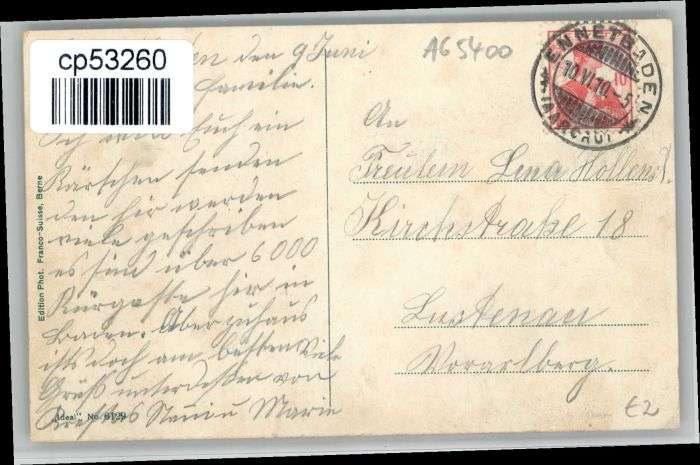 cp53260
den 9 Juni
Familie.
Ich will Euch ein
Kärtchen senden
den hir werden
viele geschriben
es sind über 6000
Kürgäste hir in
Baden. Aber zuhaus
ists doch am besten viele
Grüß unterdeßen von
Marie
Edition Phot. Franco-Suisse, Berne
"Ideal" No. 6129
A65400
ENNETBADEN
10.VI.10.-5
(AARGAU)
10
An
Freulein Lena Hollens
Kirchstraße 18
Lustenau
Vorarlberg.
€2